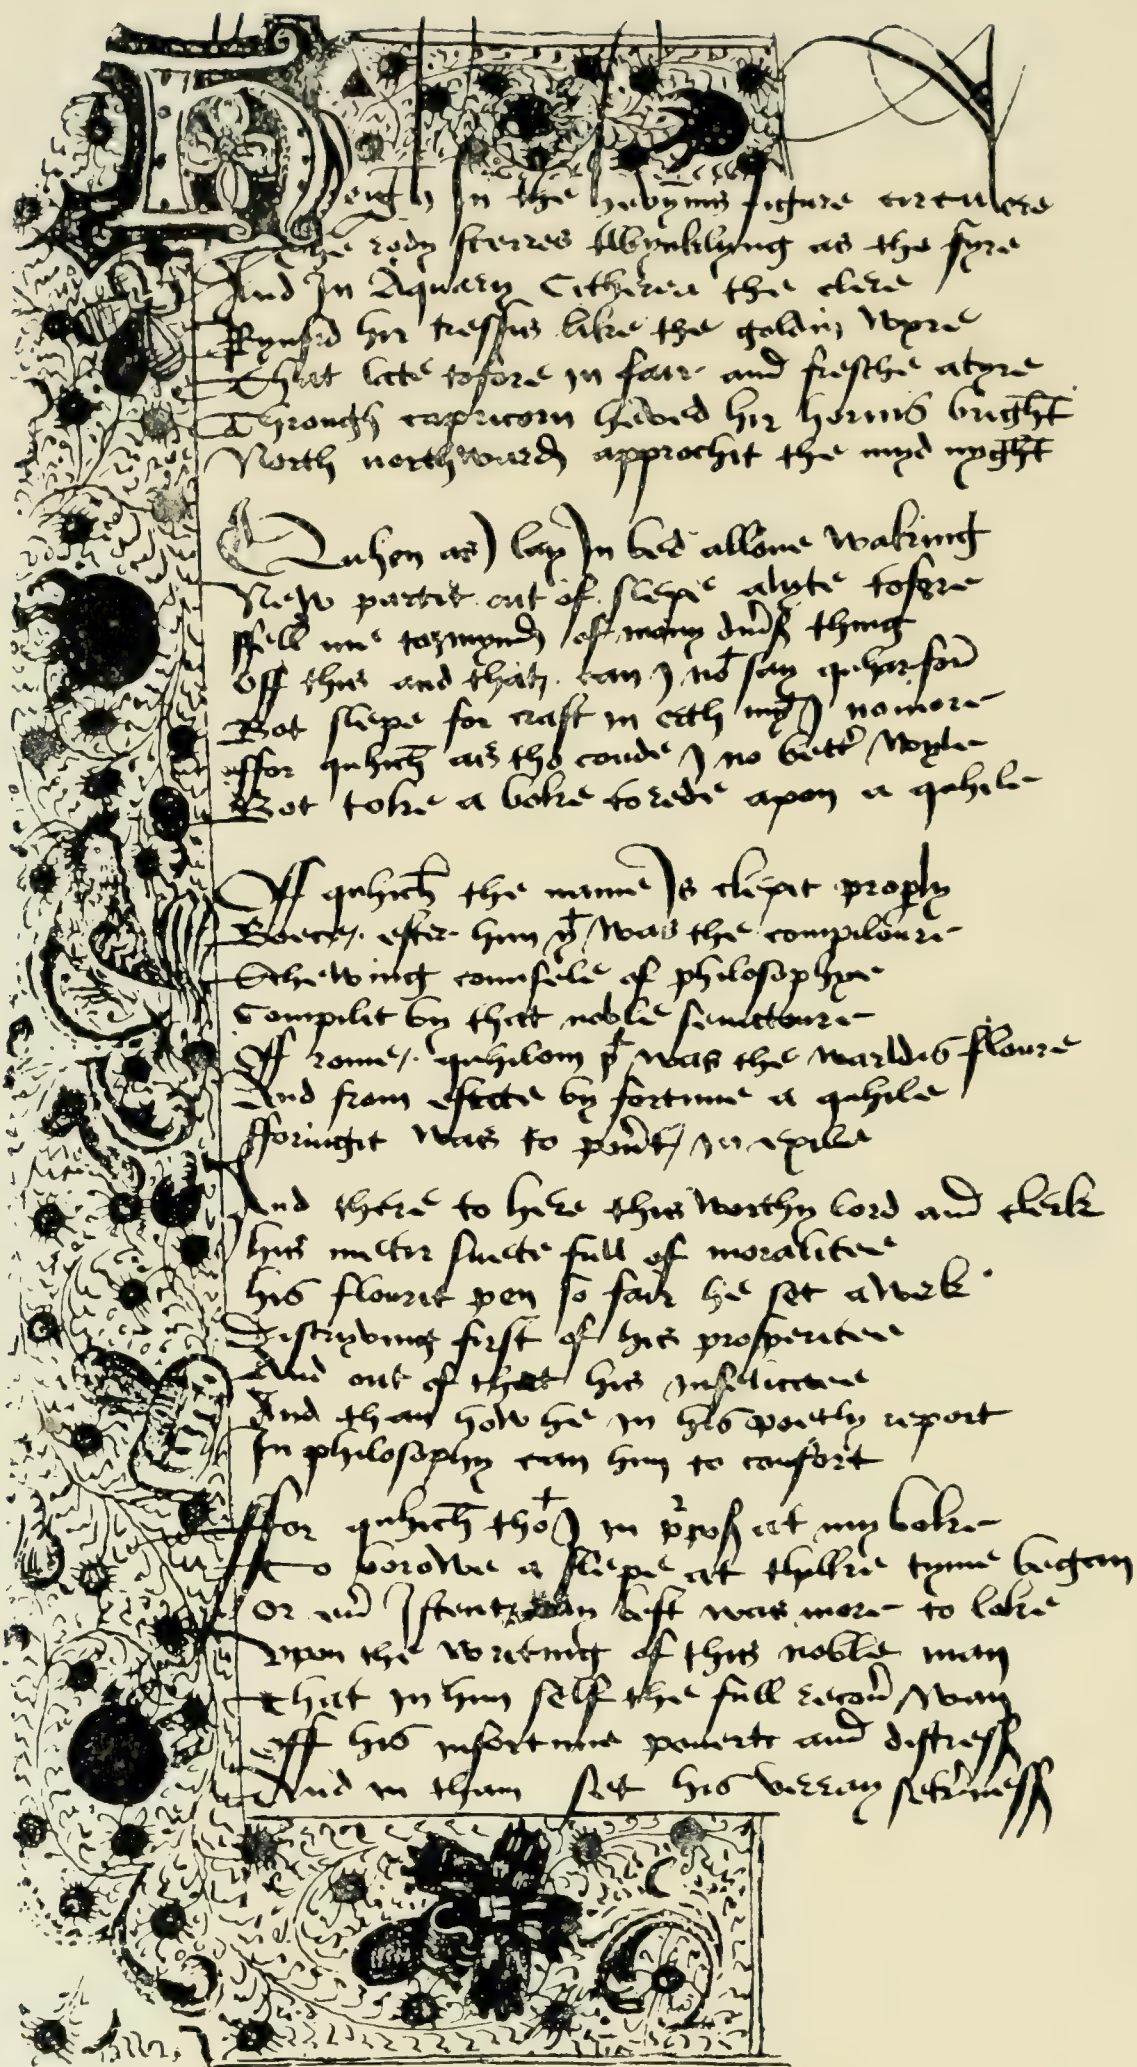 Heigh In the hevynnis figure circulere
The rody sterres twynklyng as the fyre
And In Aquary Citherea the clere
Rynsid hir tressis like the goldin wyre
That late tofore in fair and fresche atyre
Through capricorn heved hir hornis bright
North northward approchit the myd nyght

Quhen as I lay In bed allone waking
New partit out of slepe alyte tofore
ffell me to mynd of mony diuerse thing
Off this and that can I noght say quharfore
Bot slepe for craft in erth myght I no more
ffor quhich as tho coude I no better wyle
Bot toke a boke to rede apon a quhile

Off quhich the name Is clepit properly
Boece efter him þt was the compiloure
Schewing counsele of philosophye
Compilit by that noble senatoure
Off rome quhilom þt was the warldis floure
And from estate by fortune a quhile
fforiugit was to pouert in exile

And there to here this worthy lord and clerk
his metir suete full of moralitee
his flourit pen so fair he set awerk
Discryving first of his prosperitee
And out of that his infelicitee
And than how he in his poetly report
In philosophy can him to confort

ffor quhich thoght I in purpose at my boke
To borowe a slepe at thilke tyme began
Or euer I stent my best was more to loke
Vpon the writing of this noble man
That in him self the full recouer wan
Off his infortune pouert and distress
And in tham set his verray sekerness